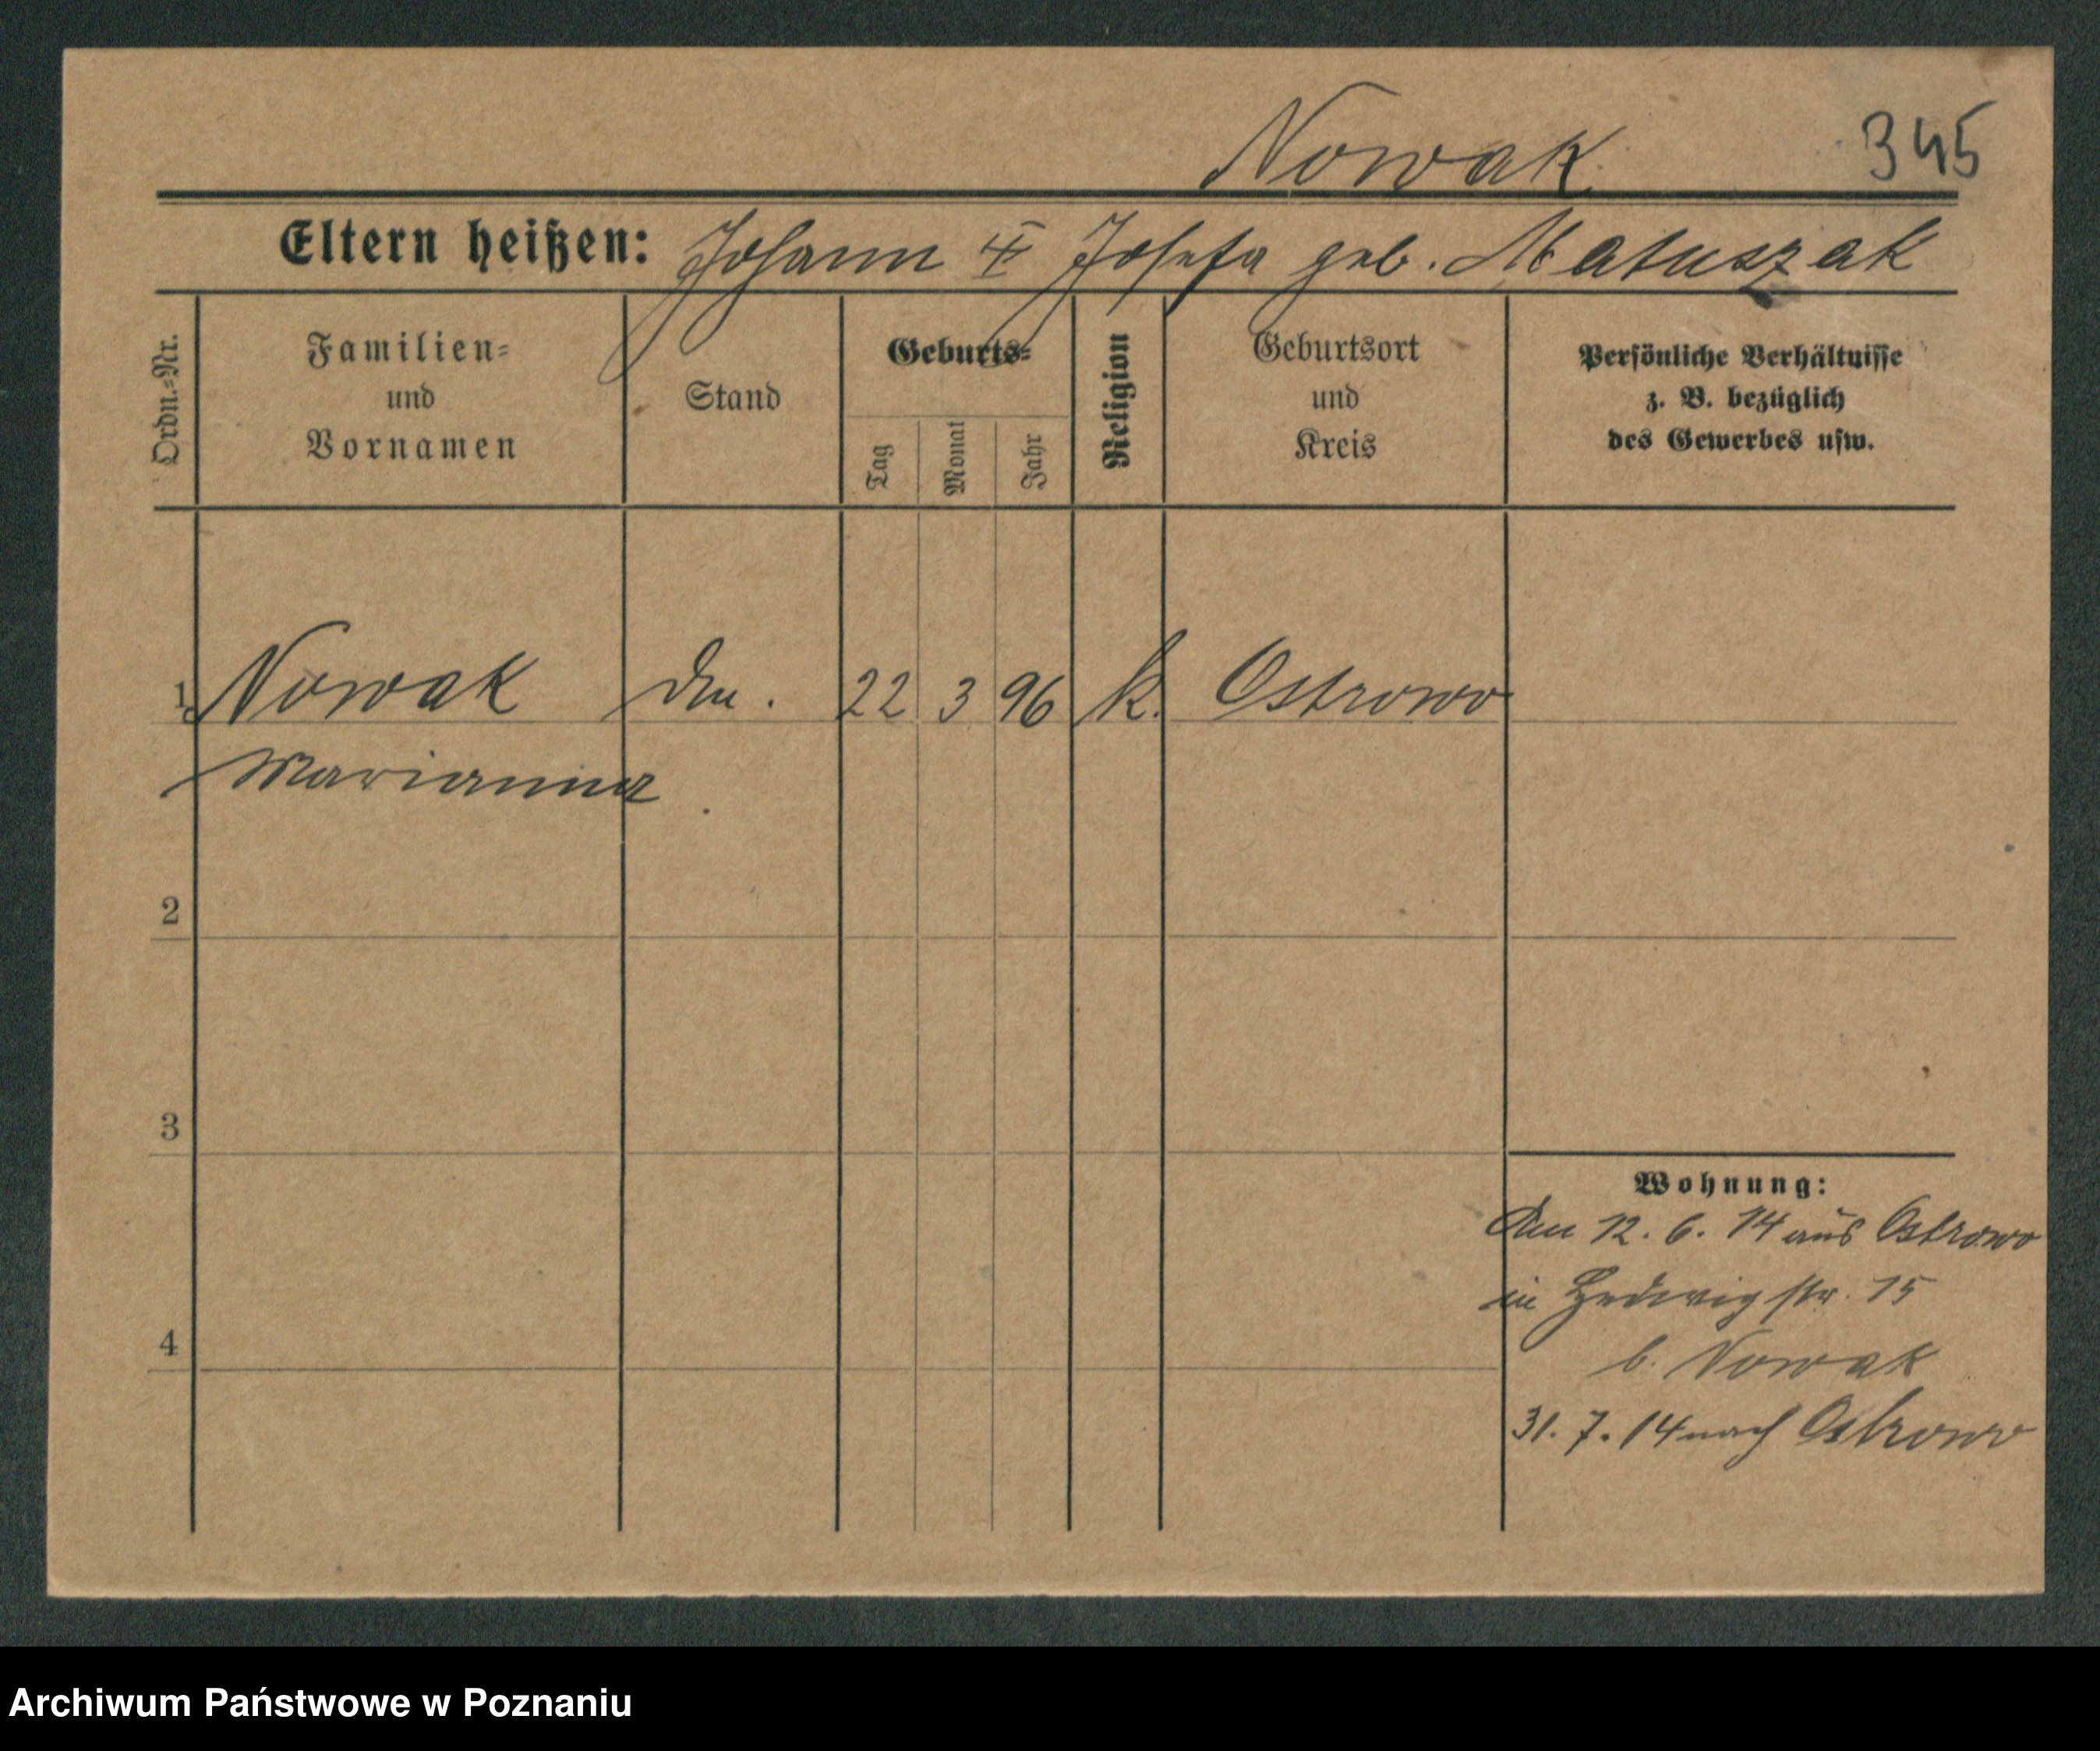 Nowak 345
Eltern heißen: Johann Josefa geb. Matuszak
Ordn.=Nr.
Familien=
und
Vornamen
Stand
Geburts=
Tag
Monat
Jahr
Religion
Geburtsort
und
Kreis
Persönliche Verhältnisse
z. B. bezüglich
des Gewerbes usw.
1 Nowak 22 3 96 k. Ostrowo
Marianna
2
3
Wohnung:
12. 6. 14 aus Ostrowo
in Hedwigstr. 15
4
b. Nowak
31. 7. 14 nach Ostrowo
Archiwum Państwowe w Poznaniu